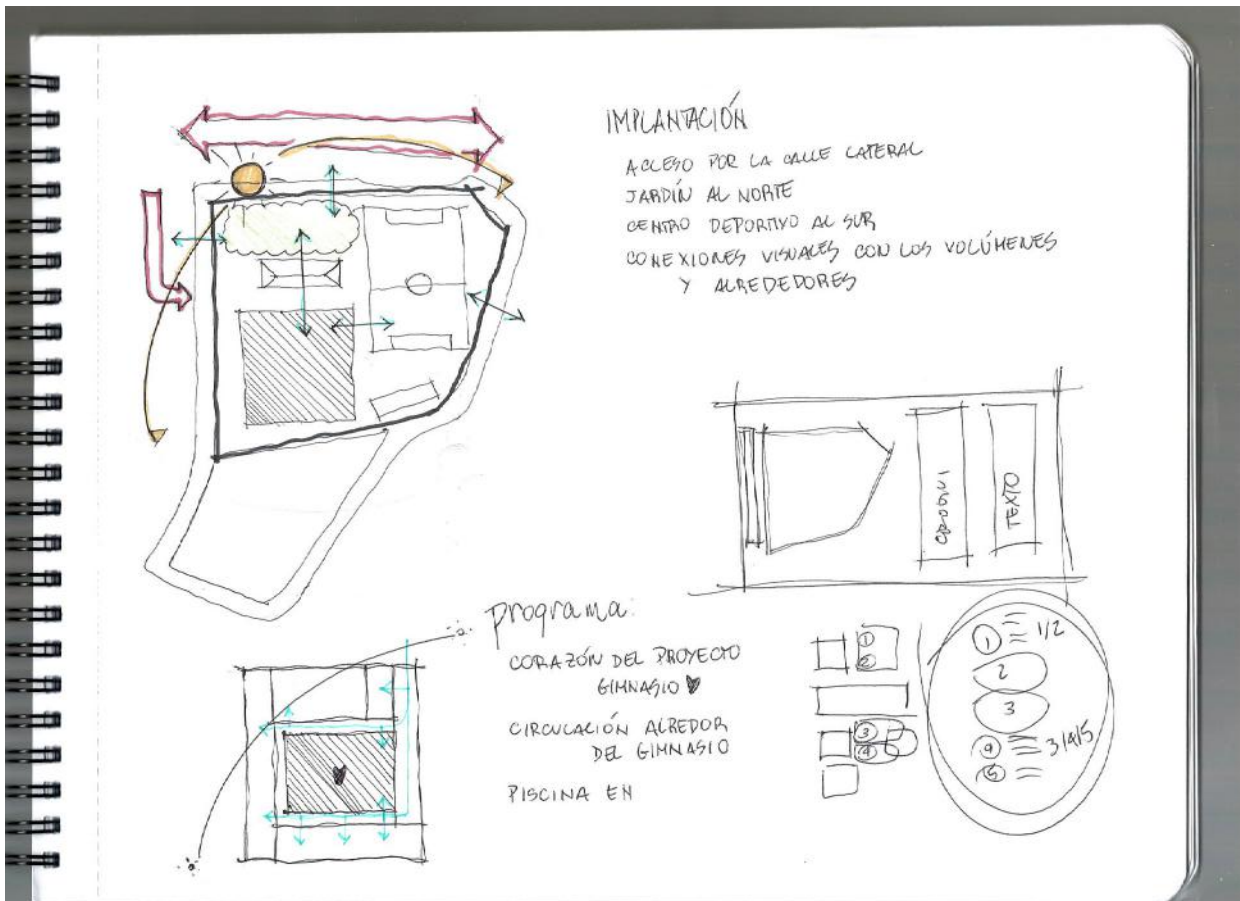 IMPLANTACIÓN
ACCESO POR LA CALLE LATERAL
JARDÍN AL NORTE
CENTRO DEPORTIVO AL SUR
CONEXIONES VISUALES CON LOS VOLÚMENES
Y ALREDEDORES
CROQUI
TEXTO
programa:
CORAZÓN DEL PROYECTO
GIMNASIO
CIRCULACIÓN ALREDOR
DEL GIMNASIO
PISCINA EN
1
2
3
4
1 1/2
2
3
4 3/4/5
5